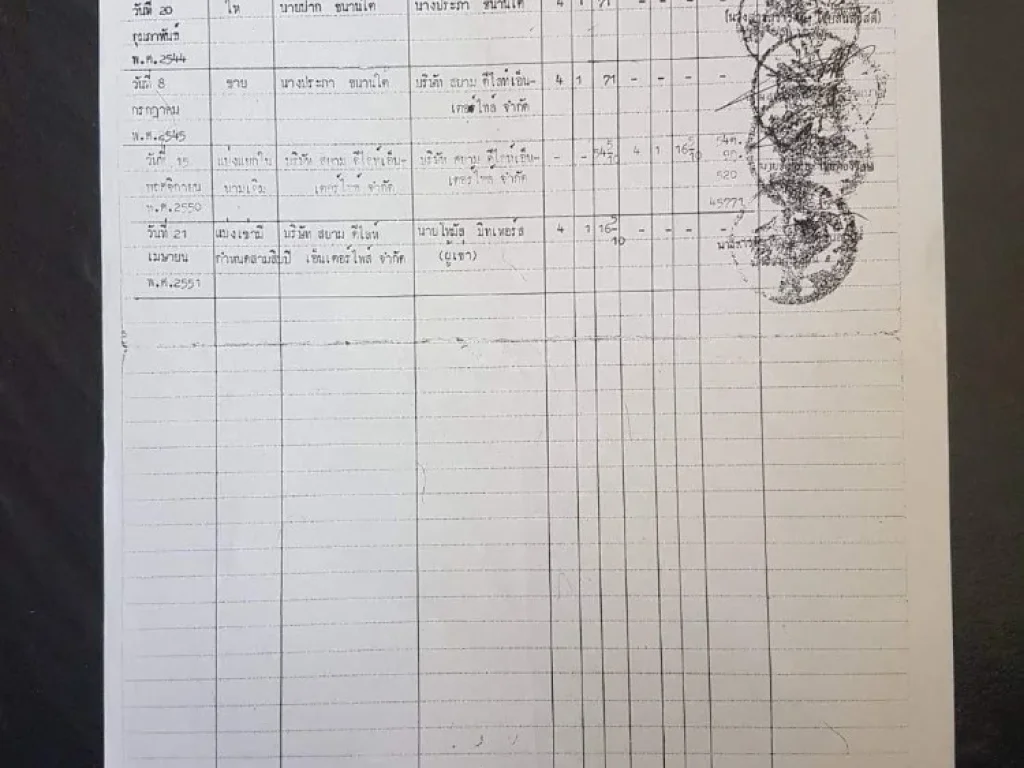 วันที่ 20 ให้ นายปาก ขนานใต้ นางประภา ขนานใต้ 4 1 71 - - - -
กุมภาพันธ์
พ.ศ.2544
วันที่ 8 ขาย นางประภา ขนานใต้ บริษัท สยาม ดีไลท์เอ็น- 4 1 71 - - - -
กรกฎาคม เตอร์ไพส์ จำกัด
พ.ศ.2545
วันที่ 15 แบ่งแยกใน บริษัท สยาม ดีไลท์เอ็น- บริษัท สยาม ดีไลท์เอ็น- - - 54 5/10 4 1 16 5/10
พฤศจิกายน นามเดิม เตอร์ไพส์ จำกัด เตอร์ไพส์ จำกัด 520
พ.ศ.2550 45771
วันที่ 21 แบ่งเช่ามี บริษัท สยาม ดีไลท์ นาย 4 1 16 5/10 - - - -
เมษายน กำหนดสามสิบปี เอ็นเตอร์ไพส์ จำกัด (ผู้เช่า)
พ.ศ.2551